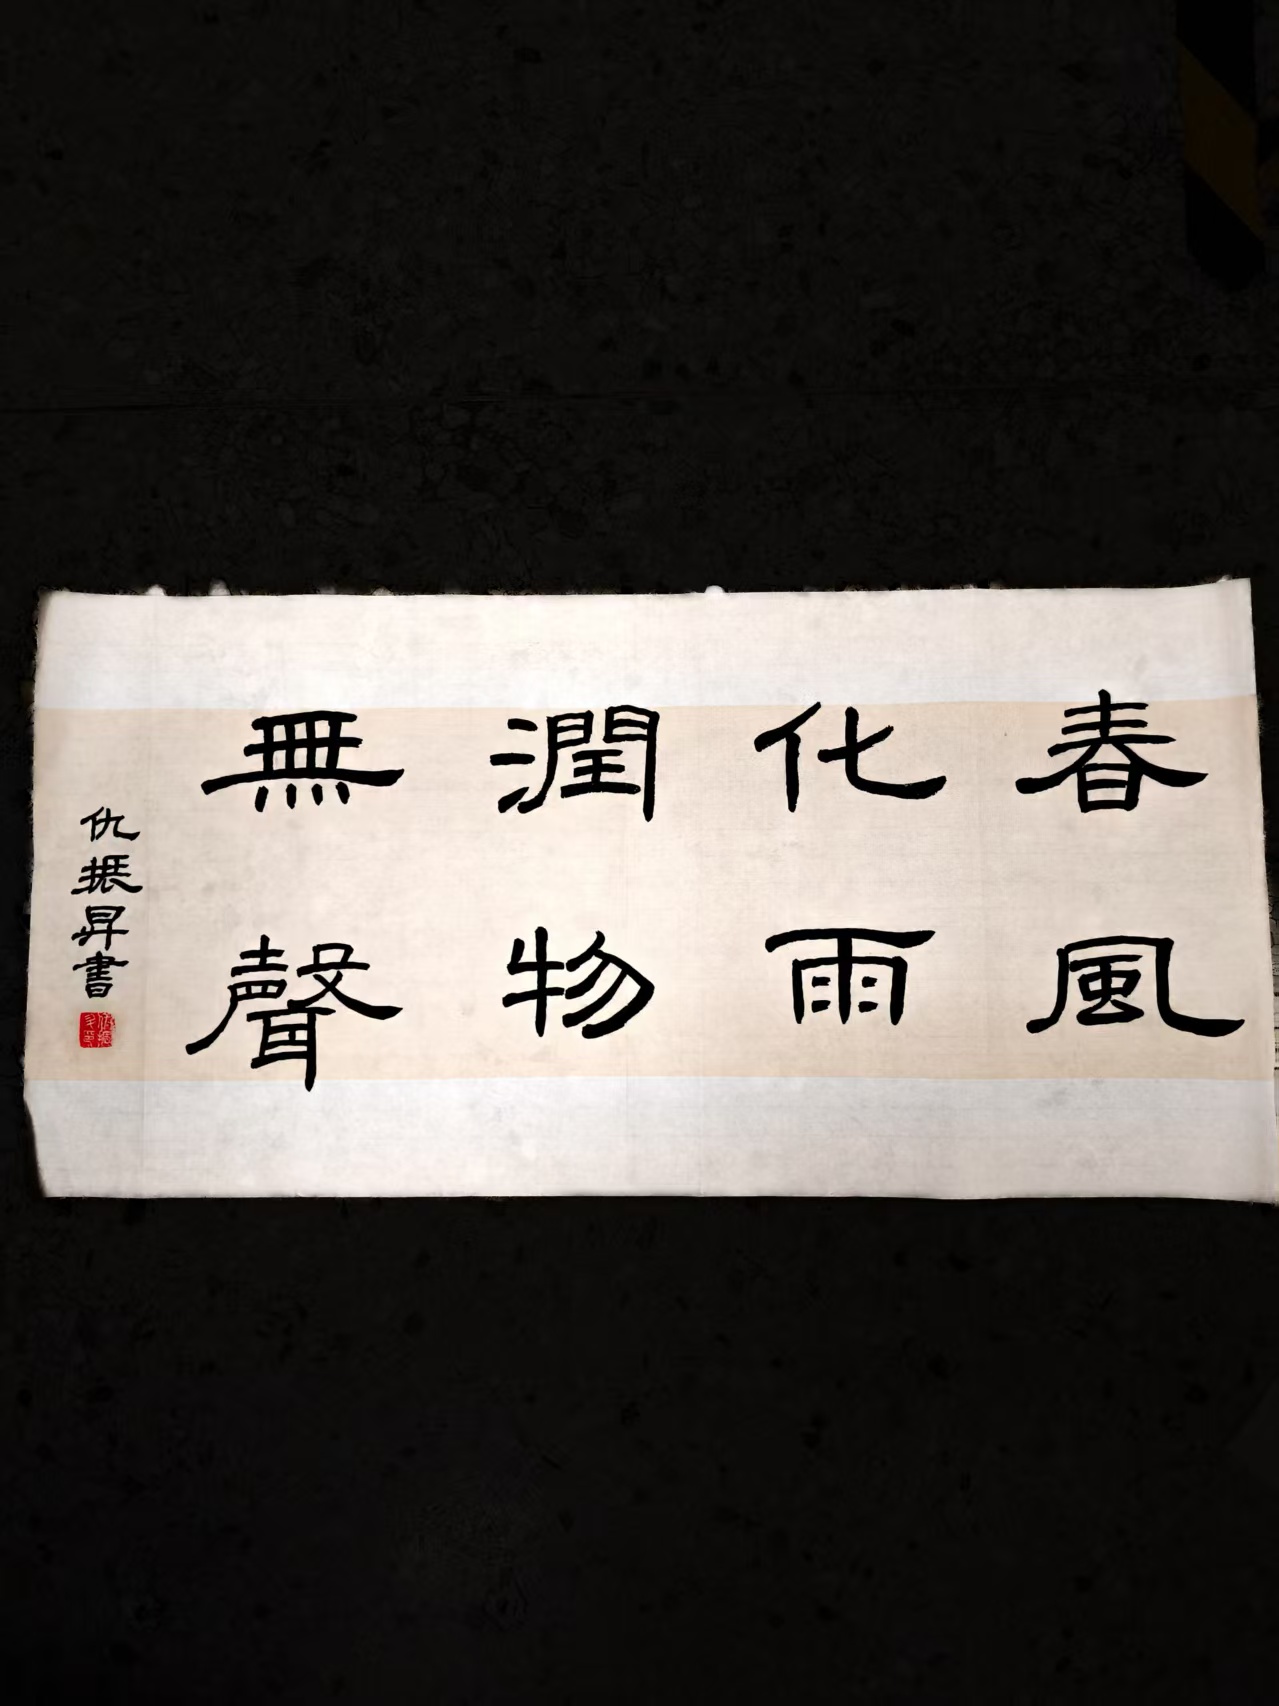 春風
化雨
潤物
無聲
仇振昇書